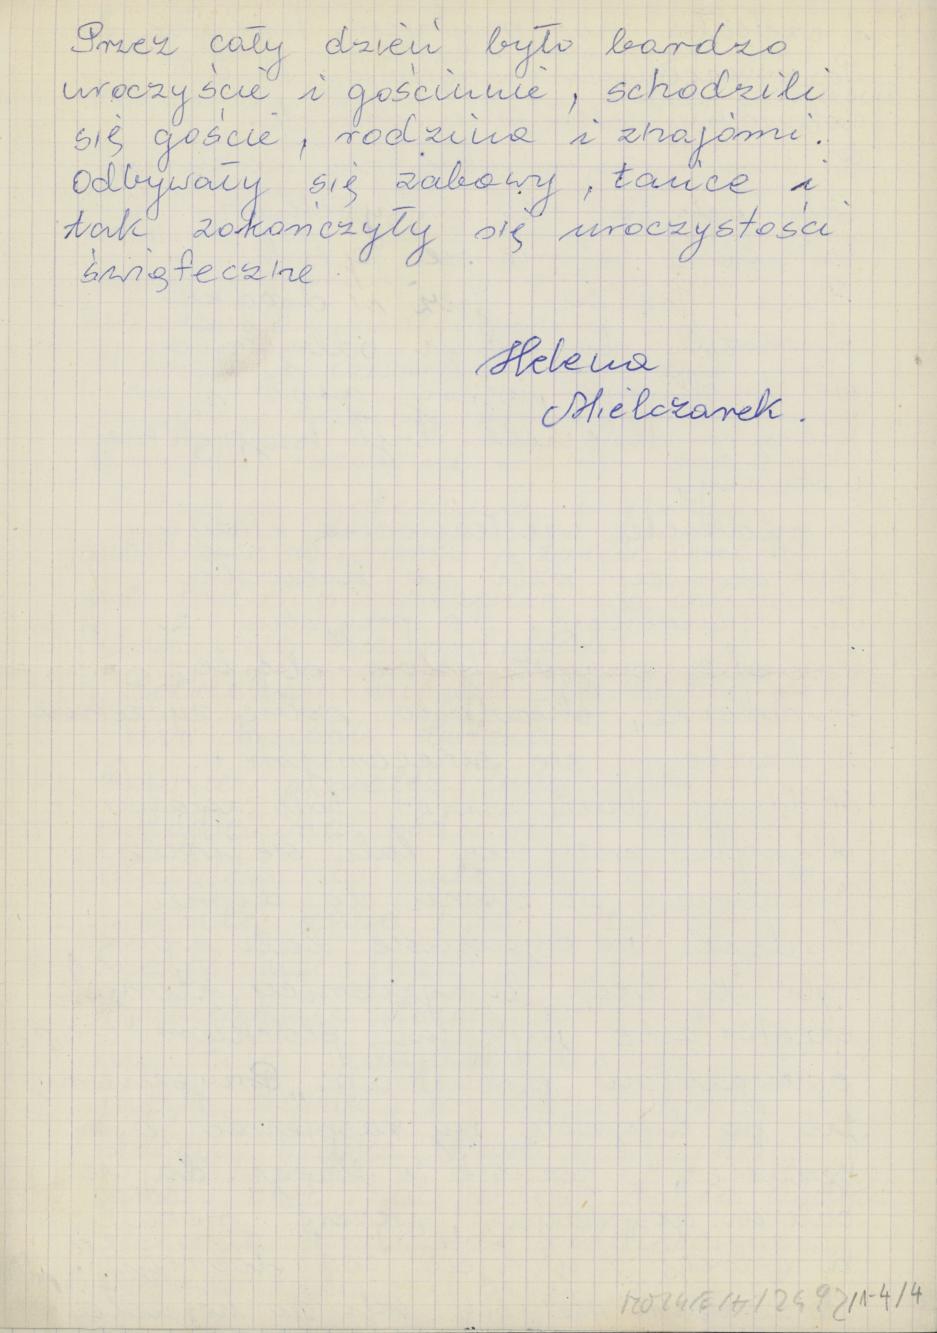 Przez cały dzień było bardzo
uroczyście i gościnnie, schodzili
się goście, rodzina i znajomi.
Odbywały się zabawy, tańce i
tak zakończyły się uroczystości
świąteczne
Helena
Mielczarek.
1-4/4